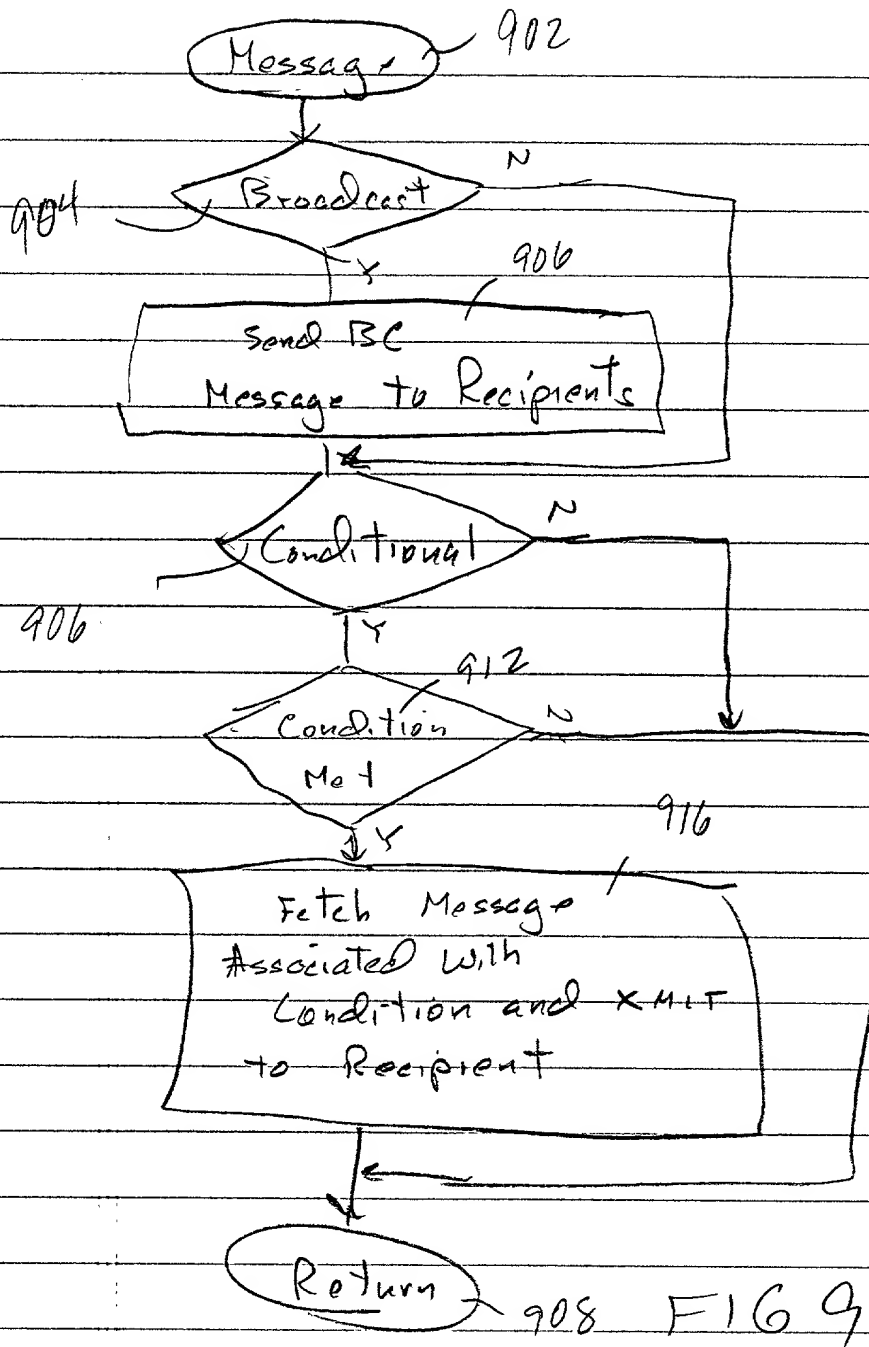 Message 902
N
Broadcast
904
Y
906
Send BC
Message to Recipients
Conditional
N
906
Y
912
Condition
N
Met
Y
916
Fetch Message
Associated With
Condition and XMIT
to Recipient
Return
908 FIG 9